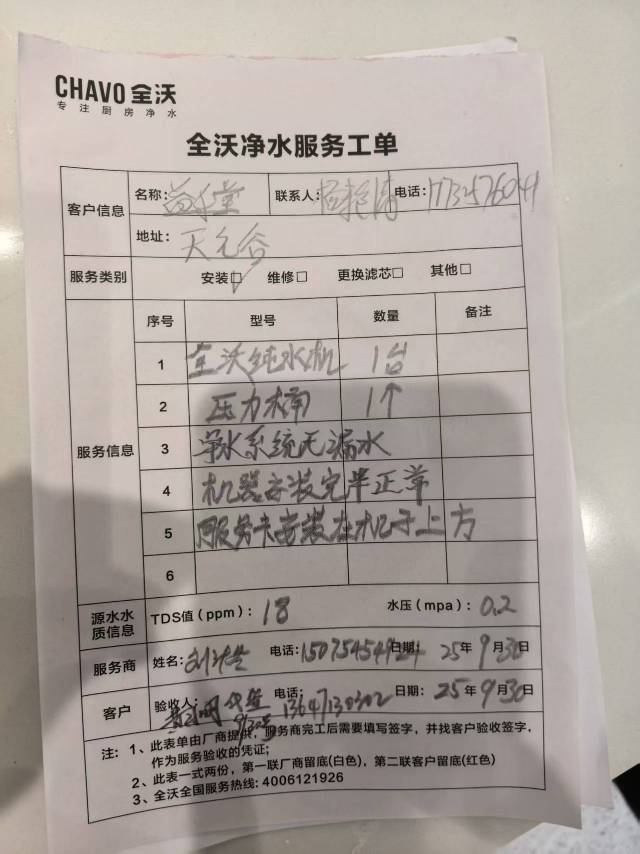 CHAVO 全沃
专注厨房净水
全沃净水服务工单
客户信息
名称：益生堂 联系人： 电话：
地址：天元谷
服务类别 安装☑ 维修□ 更换滤芯□ 其他□
服务信息
序号 型号 数量 备注
1 全沃纯水机 1台
2 压力桶 1个
3 净水系统无漏水
4 机器安装完毕正常
5 服务卡安装在机子上方
6
源水水质信息 TDS值（ppm）：18 水压（mpa）：0.2
服务商 姓名： 电话： 日期：25年9月30日
客户 验收人： 电话：13647130302 日期：25年9月30日
注：1、此表单由厂商提供，服务商完工后需要填写签字，并找客户验收签字，
作为服务验收的凭证；
2、此表一式两份，第一联厂商留底(白色)，第二联客户留底(红色)
3、全沃全国服务热线: 4006121926